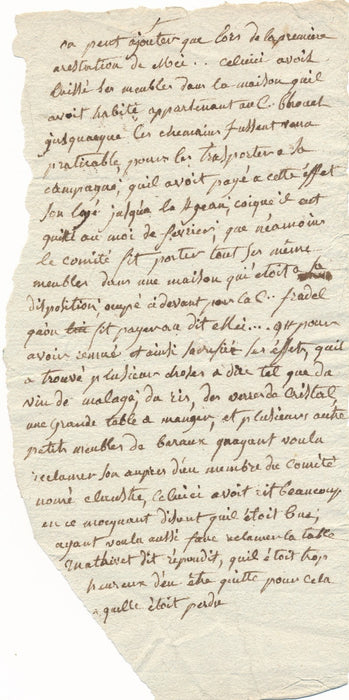 on peut ajouter que lors de la premiere
arestation de Mei... celuici avoit
laissé ses meubles dans la maison quil
avoit habité appartenant au C. Chouet
jusquaceque les chemains fussent rendu
praticable, pour les trasporter a sa
campagne, quil avoit payé a cette effet
son logé jusqua la St jean, coique il eut
quitté au moi de fevrier, que néamoins
le comité fit porter tout ses même
meubles dans une maison qui étoit a sa
disposition, ocupé cidevant par la C. fradel
quon fit payer au dit Mei... que pour
avoir remué et ainsi sacrifié ses effets, quil
a trouvé plusieur choses a dire tel que du
vin de malaga, du ris, des verres de Cristal
une grande table a manger, et plusieurs autre
petits meubles de baraux quayant voulu
reclamer son aupres d'eu membre du comité
nomé, celuici avoit rit beaucoup
en ce mocquant disent quil étoit bue,
ayant voulu aussi faire reclamer la table
Mathivet dit repondit, quil étoit trop
heureux d'en être quitte pour cela
quelle étoit perdu